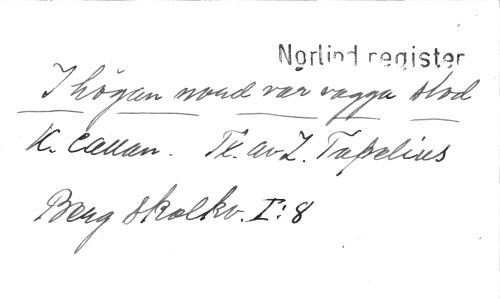 Norlind register
I högan nord vår vagga stod
K. Collan. Tx. av Z. Topelius
Berg Skolkv. I:8